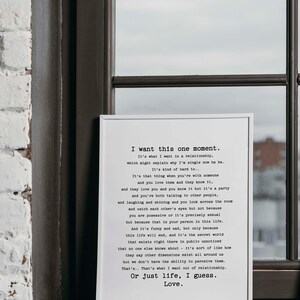 I want this one moment.
It's what I want in a relationship,
which might explain why I'm single now ha ha.
It's kind of hard to..
It's that thing when you're with someone
and you love them and they know it,
and they love you and you know it but it's a party
and you're both talking to other people,
and laughing and shining and you look across the room
and catch each other's eyes but not because
you are possessive or it's precisely sexual
but because that is your person in this life.
And it's funny and sad, but only because
this life will end, and it's the secret world
that exists right there in public unnoticed
that no one else knows about - it's sort of like how
they say other dimensions exist all around us
but we don't have the ability to perceive them.
That's.. That's what I want out of relationship.
Or just life, I guess.
Love.